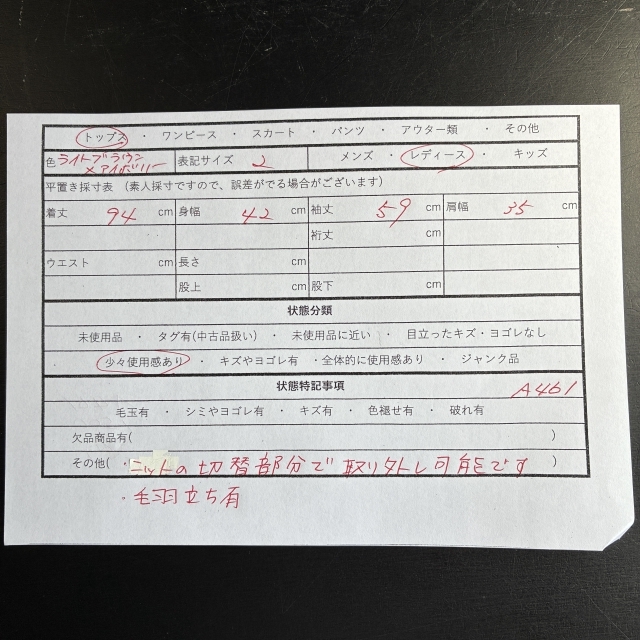 トップス ・ ワンピース ・ スカート ・ パンツ ・ アウター類 ・ その他
色 ライトブラウン×アイボリー 表記サイズ 2 メンズ ・ レディース ・ キッズ
平置き採寸表 (素人採寸ですので、誤差がでる場合がございます)
着丈 94 cm 身幅 42 cm 袖丈 59 cm 肩幅 35 cm
裄丈 cm
ウエスト cm 長さ cm
股上 cm 股下 cm
状態分類
未使用品 ・ タグ有(中古品扱い) ・ 未使用品に近い ・ 目立ったキズ・ヨゴレなし
少々使用感あり ・ キズやヨゴレ有 ・全体的に使用感あり ・ ジャンク品
状態特記事項 A461
毛玉有 ・ シミやヨゴレ有 ・ キズ有 ・ 色褪せ有 ・ 破れ有
欠品商品有( )
その他( ・ニットの切替部分で取り外し可能です )
・毛羽立ち有